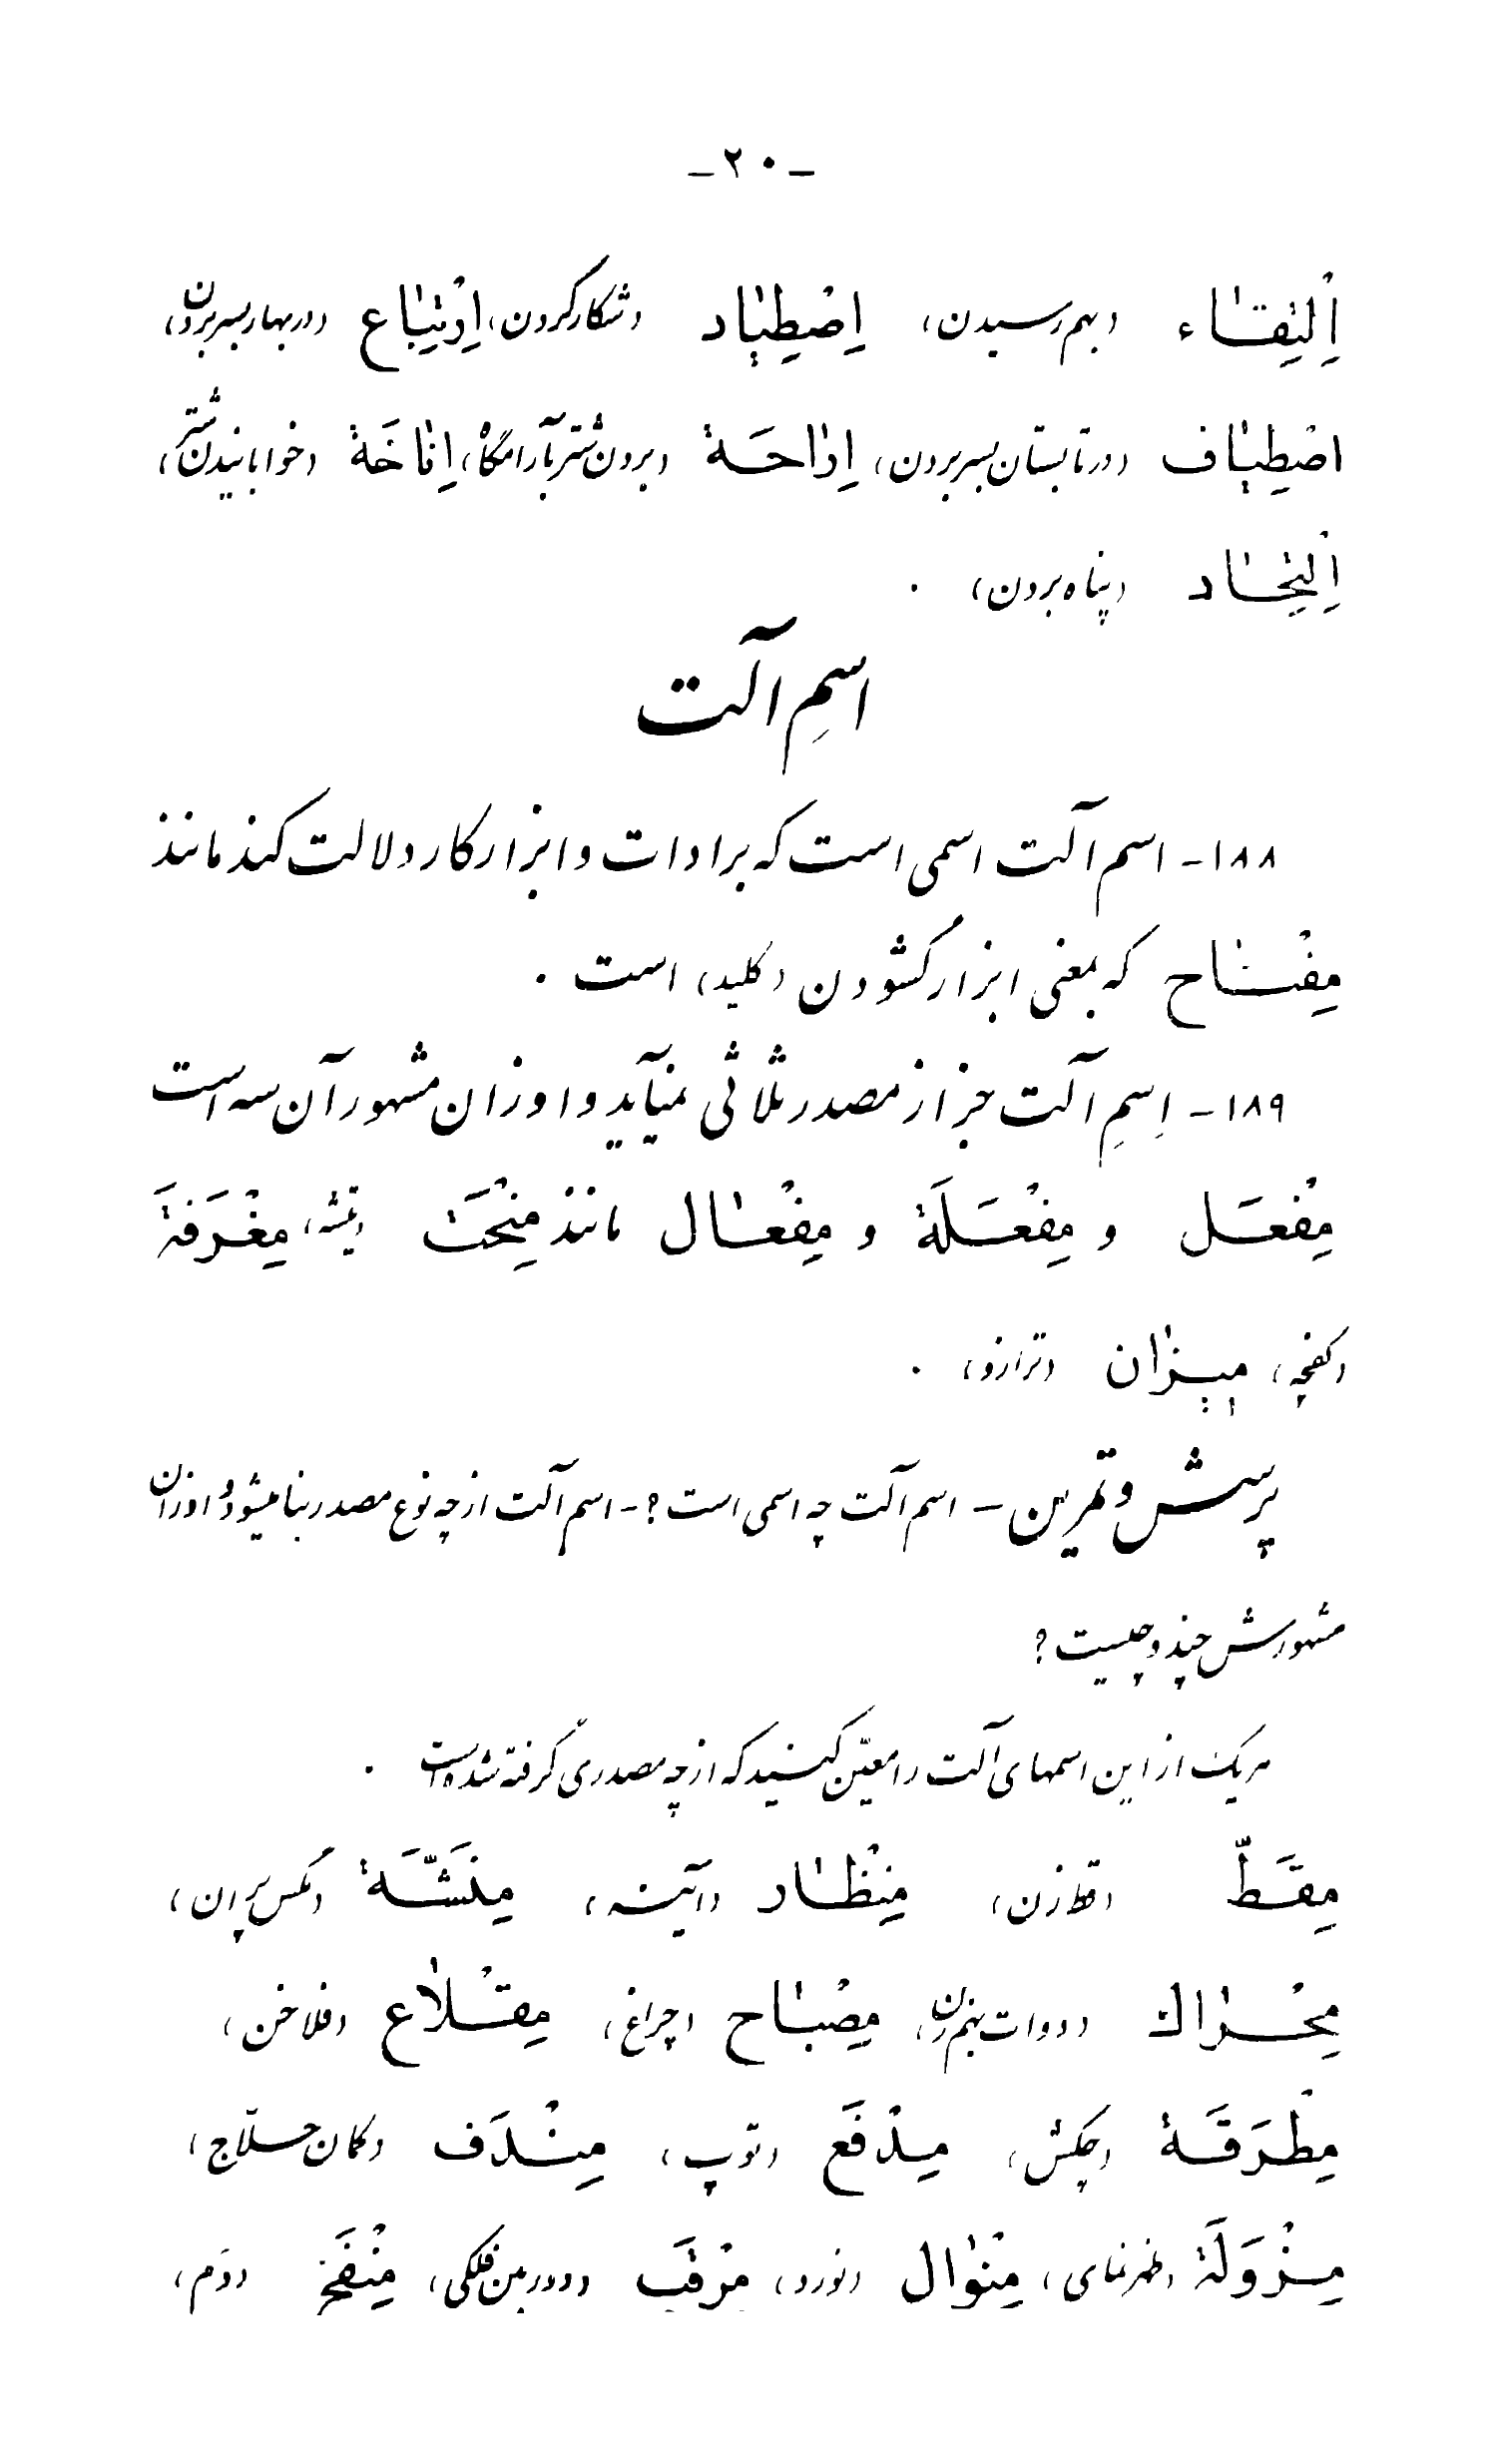 -۲۰-
اِلْتِقٰاء (بهم رسیدن) اِصْطِیٰاد (شکار کردن) اِرْتِبٰاع (در بهار بسر بردن)
اصْطِیٰاف (در تابستان بسر بردن) اِرٰاحَة (بردن شتر بآرامگاه) اِنٰاخَة (خوابانیدن شتر)
اِلْتِحٰاد (پناه بردن) .
اسمِ آلت
۱۸۸- اسم آلت اسمی است که بر ادات و ابزار کار دلالت کند مانند
مِفْتٰاح که بمعنی ابزار گشودن (کلید) است .
۱۸۹- اِسمِ آلت جز از مصدر ثلاثی نمیآید و اوزان مشهور آن سه است
مِفْعَل و مِفْعَلَة و مِفْعٰال مانند مِنْحَت (تیشه) مِغْرَفَة
(کفچه) مِیزٰان (ترازو) .
پرسش و تمرین - اسم آلت چه اسمی است؟ - اسم آلت از چه نوع مصدر بنا میشود و اوزان
مشهورش چند و چیست؟
هر یک از این اسمهای آلت را معیّن کنید که از چه مصدری گرفته شده است .
مِقَطّ (قط زن) مِنْظٰار (آینه) مِنَشَّة (مگس پران)
مِحْرٰاك (دوات بهم زن) مِصْبٰاح (چراغ) مِقْلٰاع (فلاخن)
مِطْرَقَة (چکش) مِدْفَع (توپ) مِنْدَف (کمان حلّاج)
مِزْوَلَة (ظهرنمای) مِنْوٰال (نورد) مِرْقَب (دوربین فلکی) مِنْفَخ (دَم)